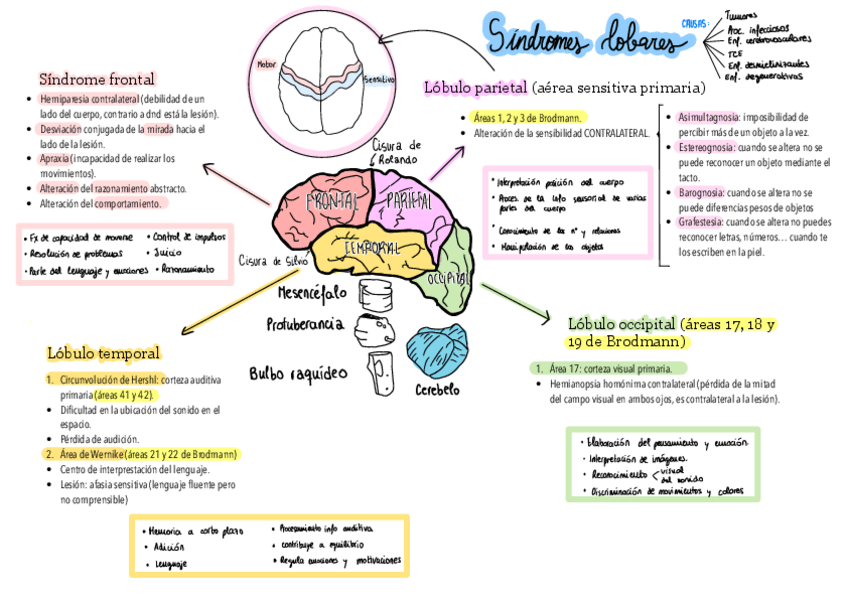 Síndromes lobares
CAUSAS:
Tumores
Enf. cerebrovasculares
TCE
Enf. desmielinizantes
Enf. degenerativas
Motor
Sensitivo
Síndrome frontal
• Hemiparesia contralateral (debilidad de un
lado del cuerpo, contrario a dnd está la lesión).
• Desviación conjugada de la mirada hacia el
lado de la lesión.
• Apraxia (incapacidad de realizar los
movimientos).
• Alteración del razonamiento abstracto.
• Alteración del comportamiento.
• Fx de capacidad de moverse
• Resolución de problemas
• Parte del lenguaje y emociones
• Control de impulsos
• Juicio
• Razonamiento
Lóbulo parietal (aérea sensitiva primaria)
• Áreas 1, 2 y 3 de Brodmann.
• Alteración de la sensibilidad CONTRALATERAL.
• Asimultagnosia: imposibilidad de
percibir más de un objeto a la vez.
• Estereognosia: cuando se altera no se
puede reconocer un objeto mediante el
tacto.
• Barognosia: cuando se altera no se
puede diferencias pesos de objetos
• Grafestesia: cuando se altera no puedes
reconocer letras, números... cuando te
los escriben en la piel.
• Interpretación posición del cuerpo
• Proces. de la info sensorial de varias
partes del cuerpo
Conocimiento de los nº y relaciones
• Manipulación de los objetos
Cisura de
Rolando
FRONTAL
PARIETAL
TEMPORAL
OCCIPITAL
Cisura de Silvio
Mesencéfalo
Protuberancia
Bulbo raquídeo
Cerebelo
Lóbulo temporal
1. Circunvolución de Hershl: corteza auditiva
primaria (áreas 41 y 42).
• Dificultad en la ubicación del sonido en el
espacio.
• Pérdida de audición.
2. Área de Wernike (áreas 21 y 22 de Brodmann)
• Centro de interprestación del lenguaje.
• Lesión: afasia sensitiva (lenguaje fluente pero
no comprensible)
• Memoria a corto plazo
• Adición
• Lenguaje
• Procesamiento info auditiva
• contribuye a equilibrio
• Regula emociones y motivaciones
Lóbulo occipital (áreas 17, 18 y
19 de Brodmann)
1. Área 17: corteza visual primaria.
• Hemianopsia homónima contralateral (pérdida de la mitad
del campo visual en ambos ojos, es contralateral a la lesión).
• Elaboración del pensamiento y emoción.
• Interpretación de imágenes.
• Reconocimiento visual
del sonido
• Discriminación de movimientos y colores